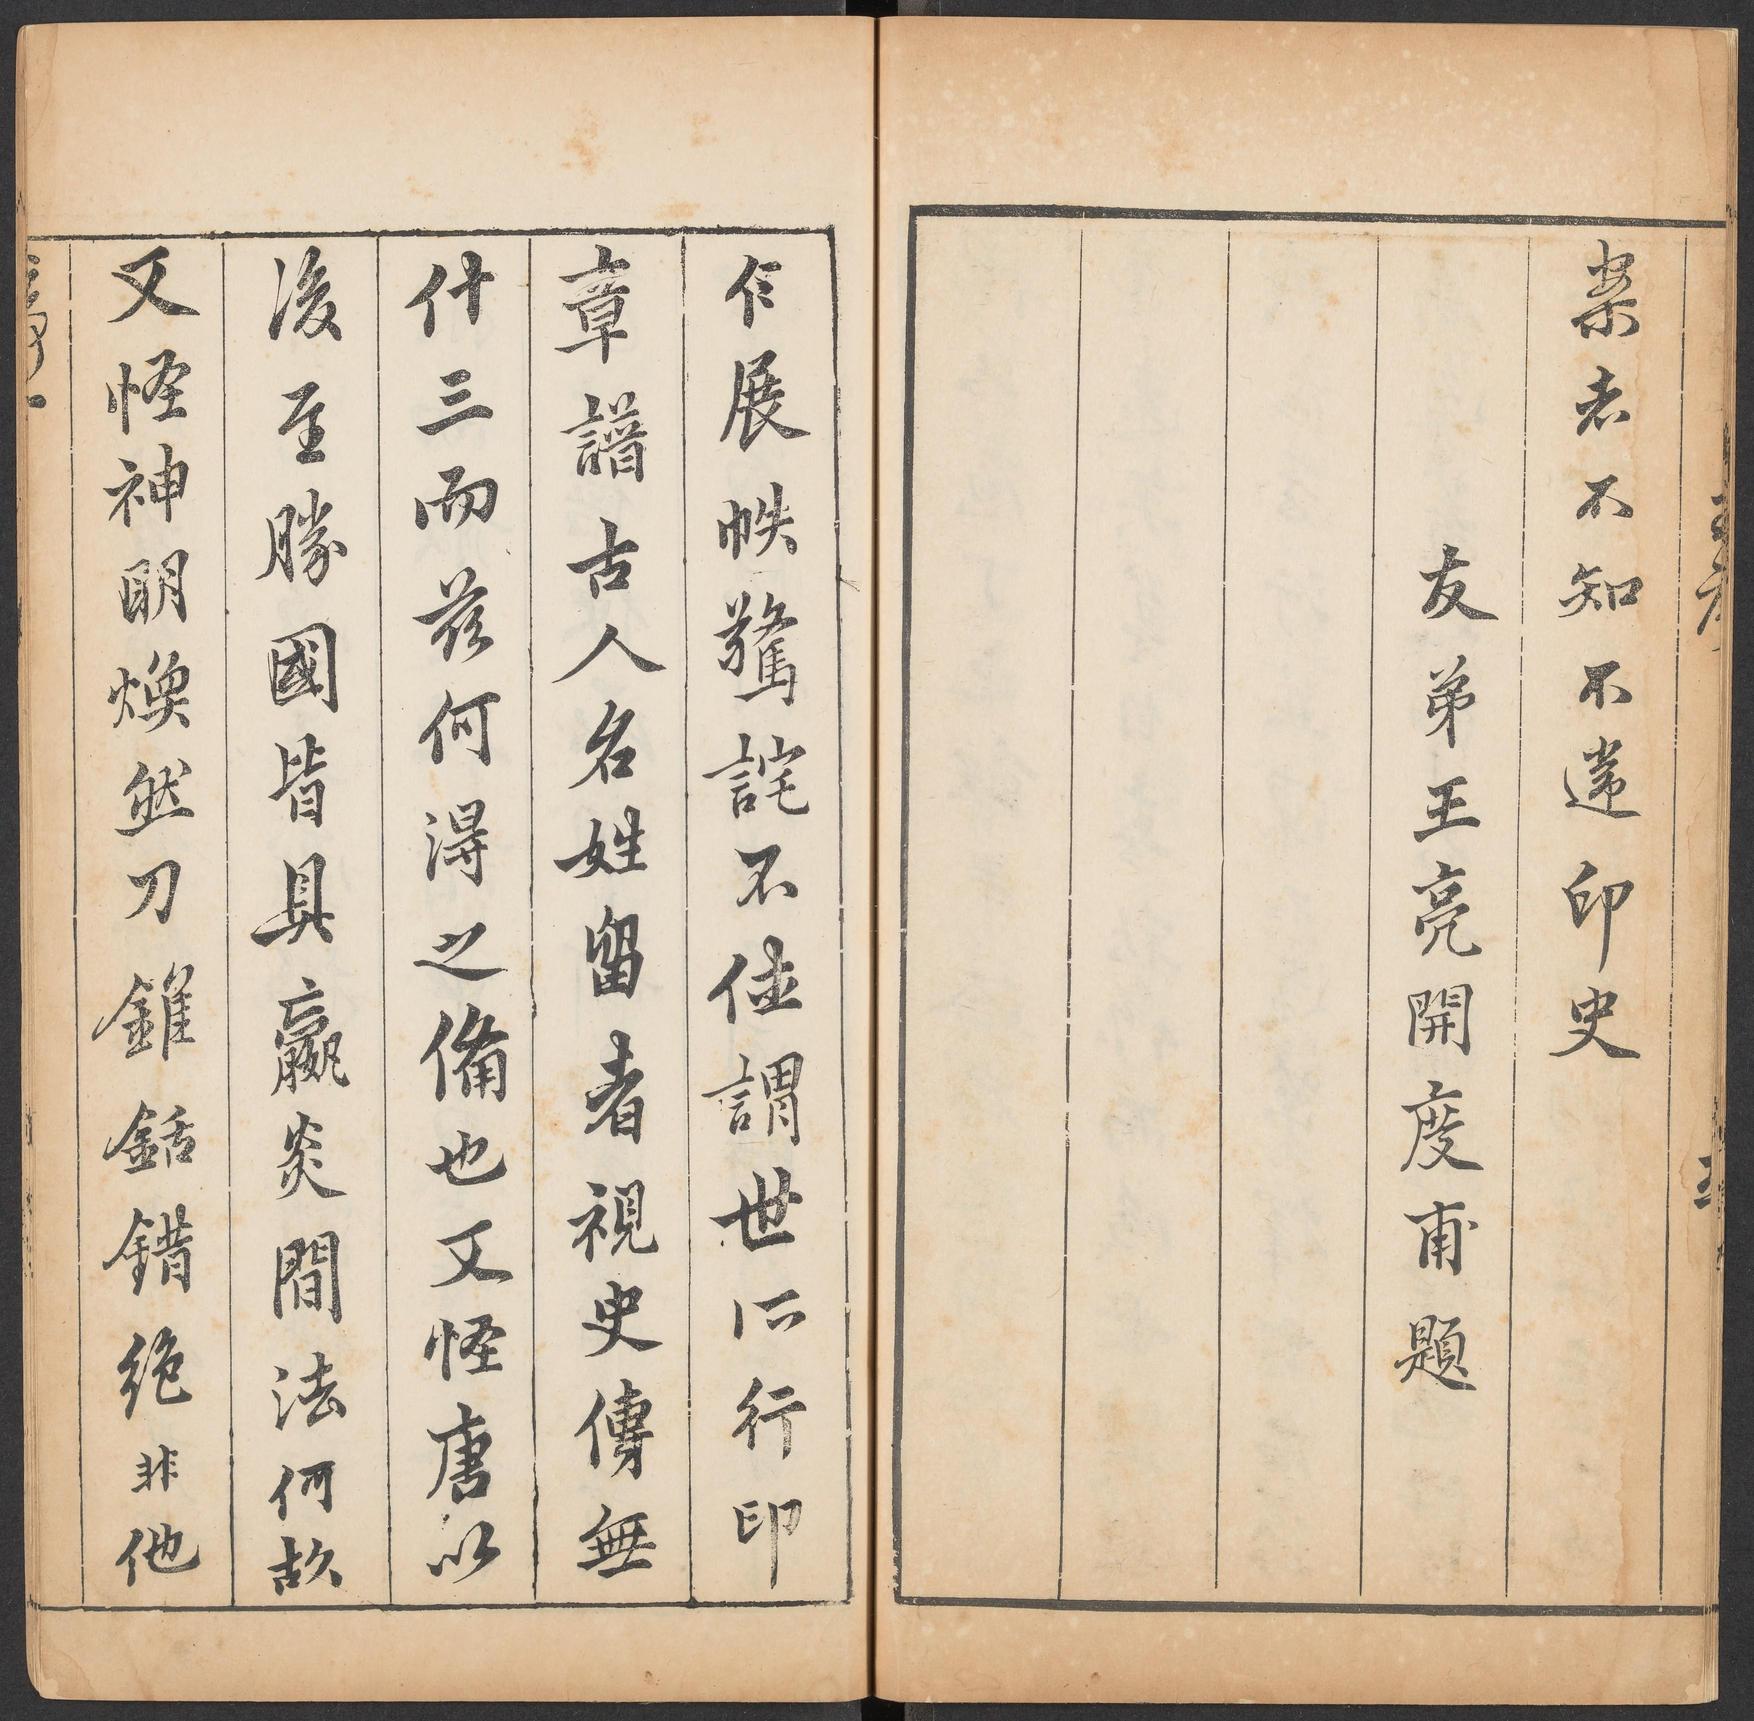 案者不知不遑印史
友弟王亮開度甫題
乍展帙驚詫不佳謂世所行印
章譜古人名姓留者視史傳無
什三而茲何得之備也又怪唐以
後至勝國皆具嬴炎間法何故
又怪神明煥然刀錐銛錯絶非他